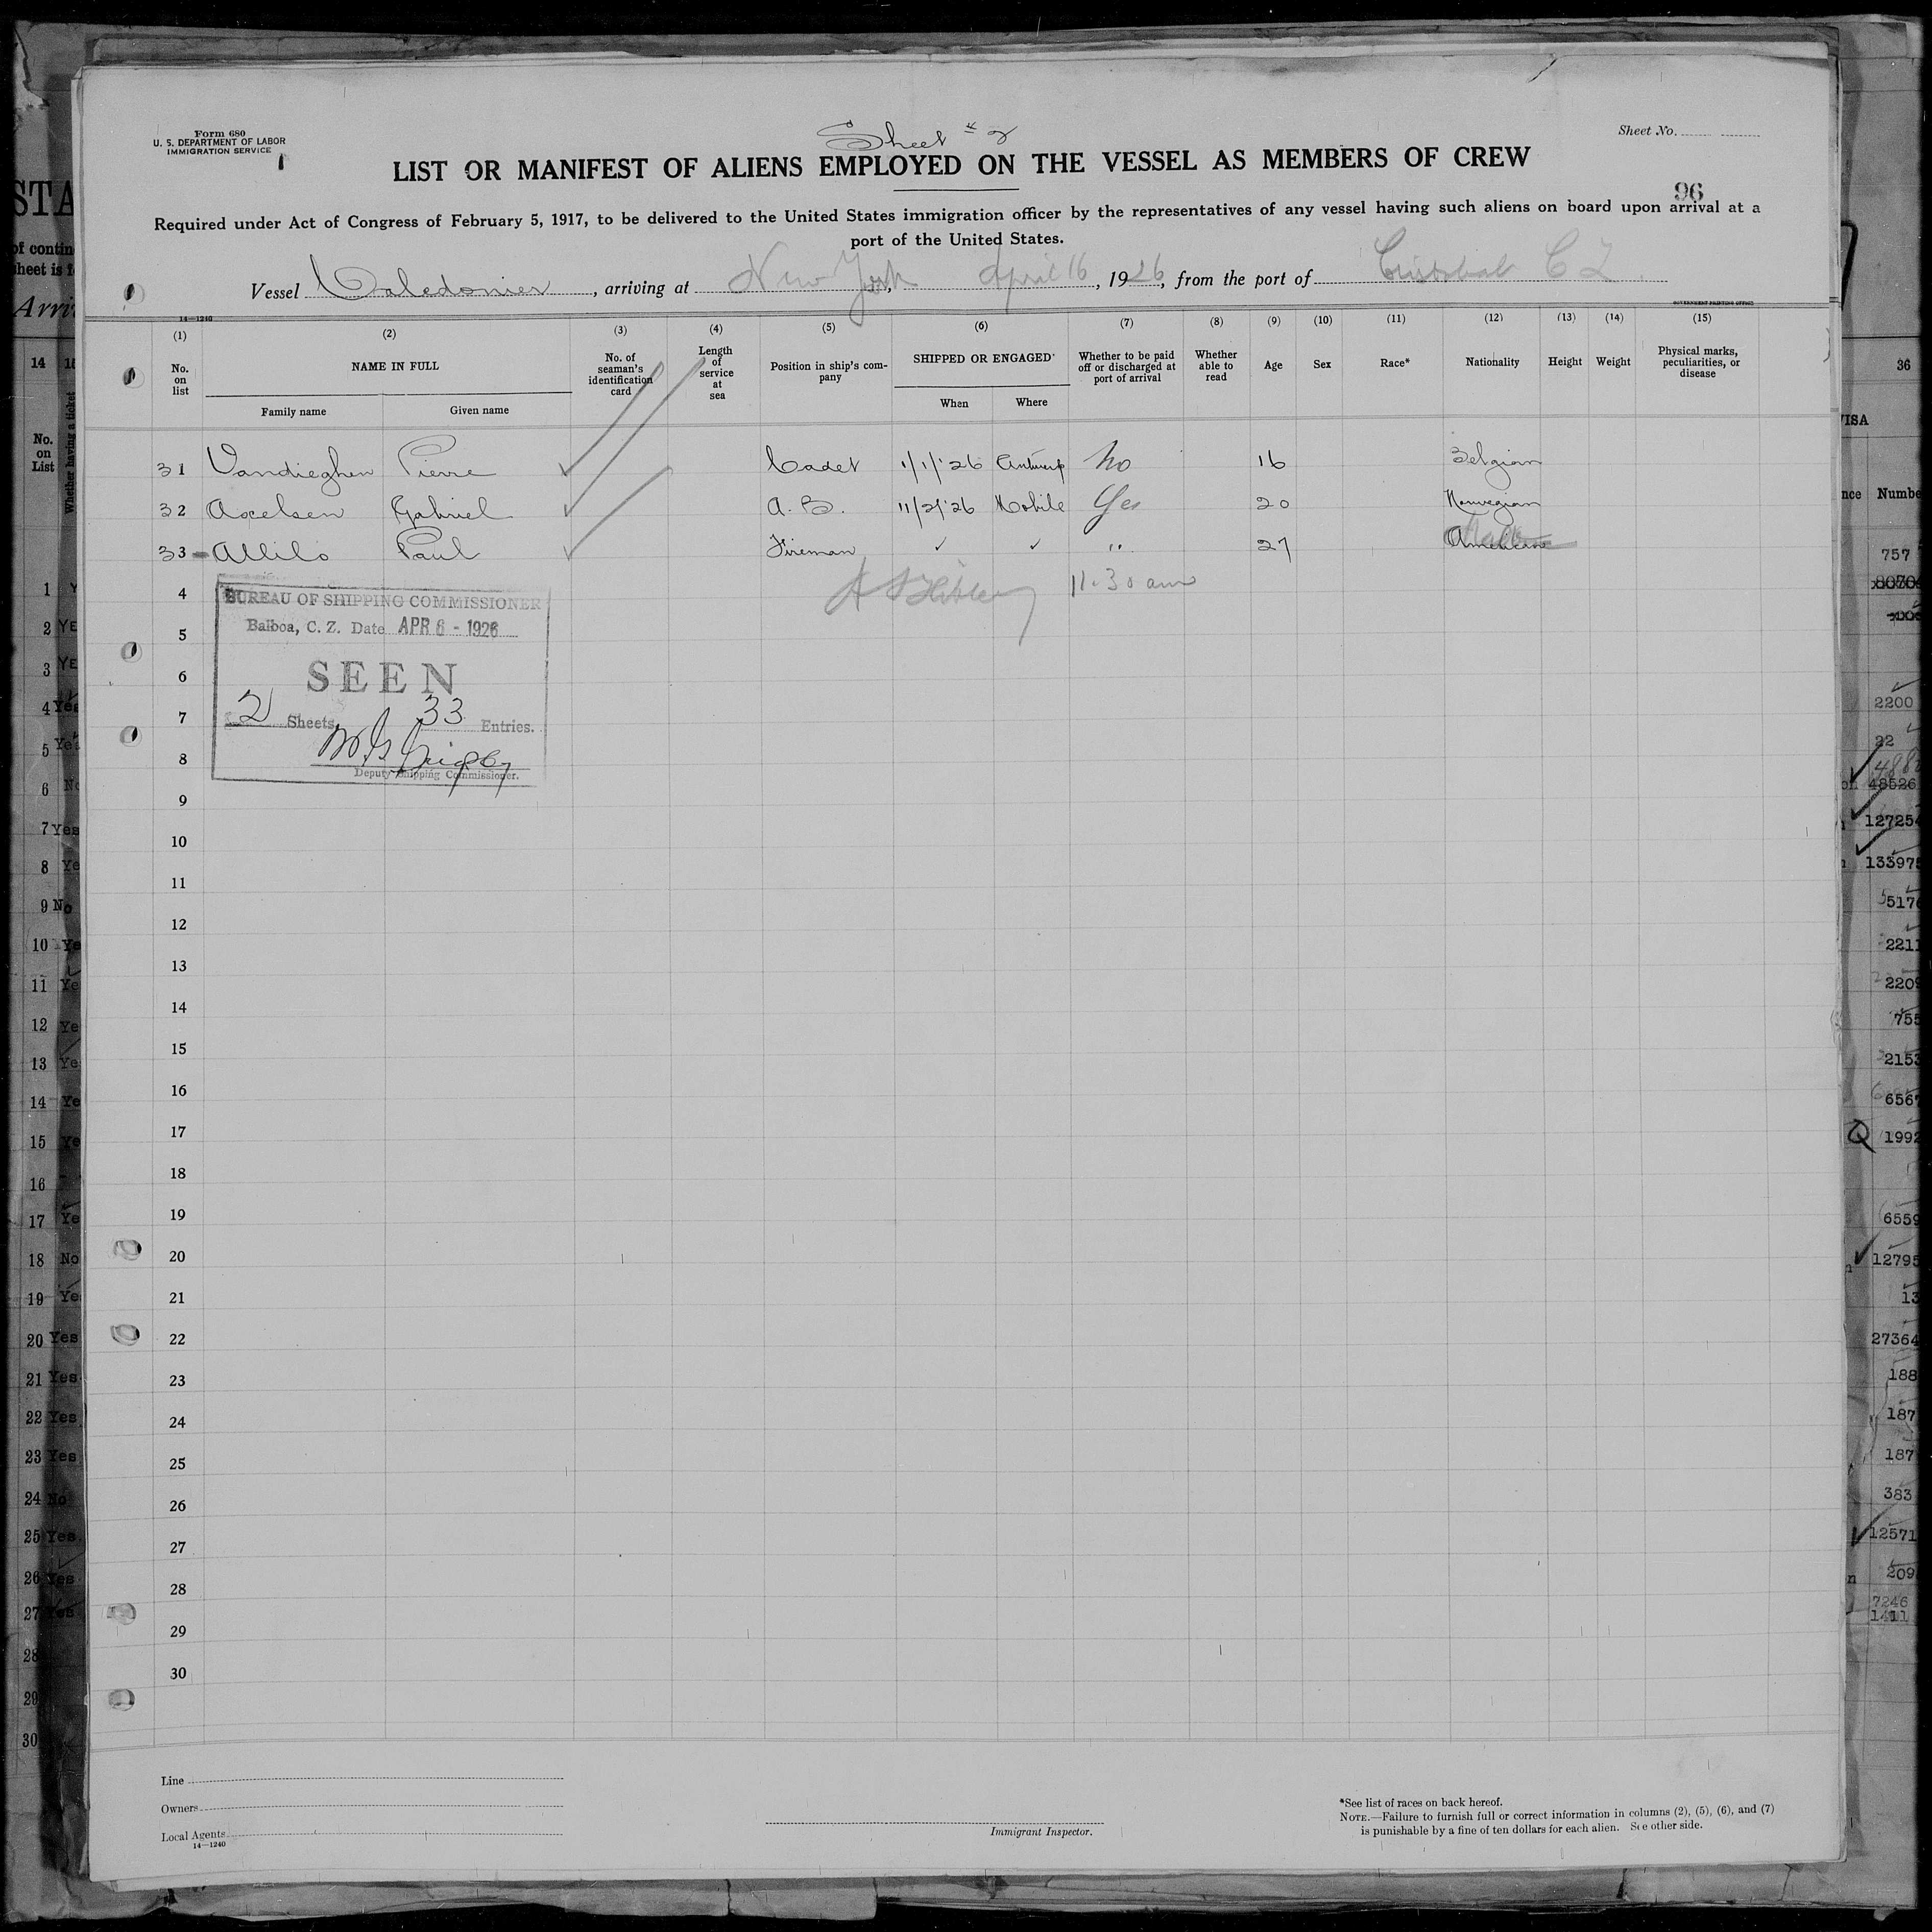 Form 680
U. S. DEPARTMENT OF LABOR
IMMIGRATION SERVICE
Sheet # 2
Sheet No.
LIST OR MANIFEST OF ALIENS EMPLOYED ON THE VESSEL AS MEMBERS OF CREW
96
Required under Act of Congress of February 5, 1917, to be delivered to the United States immigration officer by the representatives of any vessel having such aliens on board upon arrival at a
port of the United States.
Vessel Caledonier, arriving at New York, April 16, 1926, from the port of Cristobal C Z
14—1240
GOVERNMENT PRINTING OFFICE
(1) (2) (3) (4) (5) (6) (7) (8) (9) (10) (11) (12) (13) (14) (15)
No. on list
NAME IN FULL
Family name Given name
No. of seaman's identification card
Length of service at sea
Position in ship's company
SHIPPED OR ENGAGED
When Where
Whether to be paid off or discharged at port of arrival
Whether able to read
Age Sex Race* Nationality Height Weight
Physical marks, peculiarities, or disease
31 Vandieghen Pierre Cadet 1/1/'26 Antwerp No 16 Belgian
32 Axelsen Gabriel A. B. 11/2/'26 Mobile Yes 20 Norwegian
33 Allilo Paul Fireman ✓ ✓ " 27 American
4 11.30 am
BUREAU OF SHIPPING COMMISSIONER
Balboa, C. Z. Date APR 6 - 1926
SEEN
2 Sheets, 33 Entries.
Deputy Shipping Commissioner.
5
6
7
8
9
10
11
12
13
14
15
16
17
18
19
20
21
22
23
24
25
26
27
28
29
30
Line
Owners
Local Agents
14—1240
Immigrant Inspector.
*See list of races on back hereof.
NOTE.—Failure to furnish full or correct information in columns (2), (5), (6), and (7)
is punishable by a fine of ten dollars for each alien. See other side.